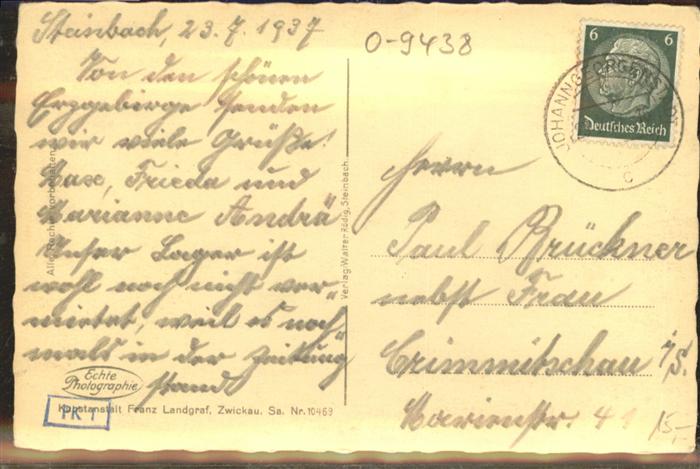 Steinbach, 23.7.1937
Von den schönen
Erzgebirge senden
wir viele Grüße!
Max, Frieda und
Marianne Andrä
Unser Lager ist
wohl noch nicht ver-
mietet, weil es noch-
mals in der Zeitung
stand
O-9438
6 6
Deutsches Reich
JOHANNGEORGENSTADT
c
Herrn
Paul Brückner
nebst Frau
Crimmitschau i/S.
Marienstr. 41
15,-
Alle Rechte vorbehalten
Verlag: Walter Rödig, Steinbach
Echte
Photographie
Kunstanstalt Franz Landgraf, Zwickau. Sa. Nr. 10469